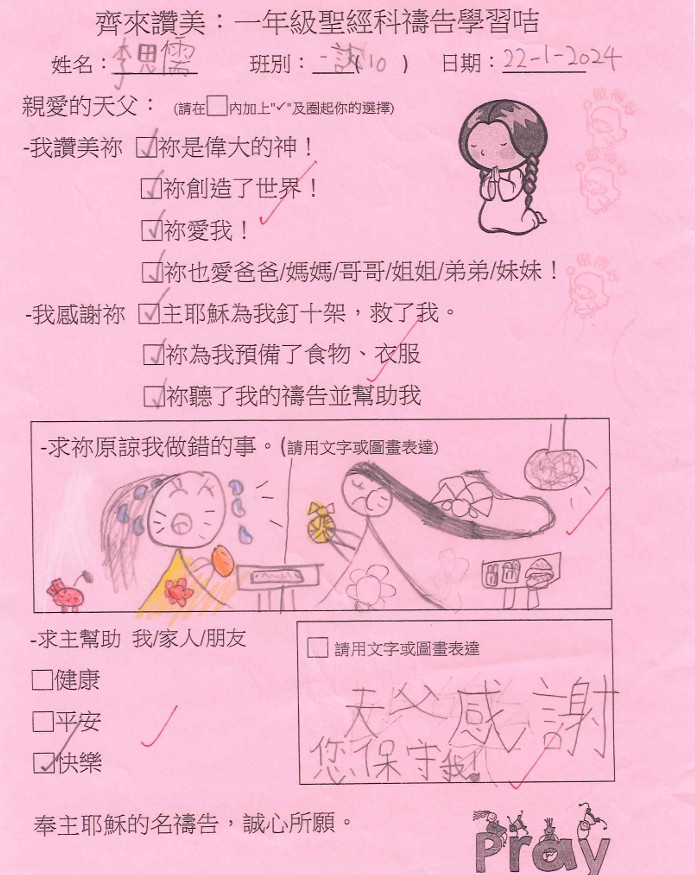 齊來讚美：一年級聖經科禱告學習咭
姓名：李思儒 班別：一誠(10) 日期：22-1-2024
親愛的天父：(請在□內加上"✓"及圈起你的選擇)
-我讚美祢 ☑祢是偉大的神！
☑祢創造了世界！
☑祢愛我！
☑祢也愛爸爸/媽媽/哥哥/姐姐/弟弟/妹妹！
-我感謝祢 ☑主耶穌為我釘十架，救了我。
☑祢為我預備了食物、衣服
☑祢聽了我的禱告並幫助我
-求祢原諒我做錯的事。(請用文字或圖畫表達)
-求主幫助 我/家人/朋友
□請用文字或圖畫表達
□健康
□平安
☑快樂
天父感謝
您保守我!
奉主耶穌的名禱告，誠心所願。
Pray